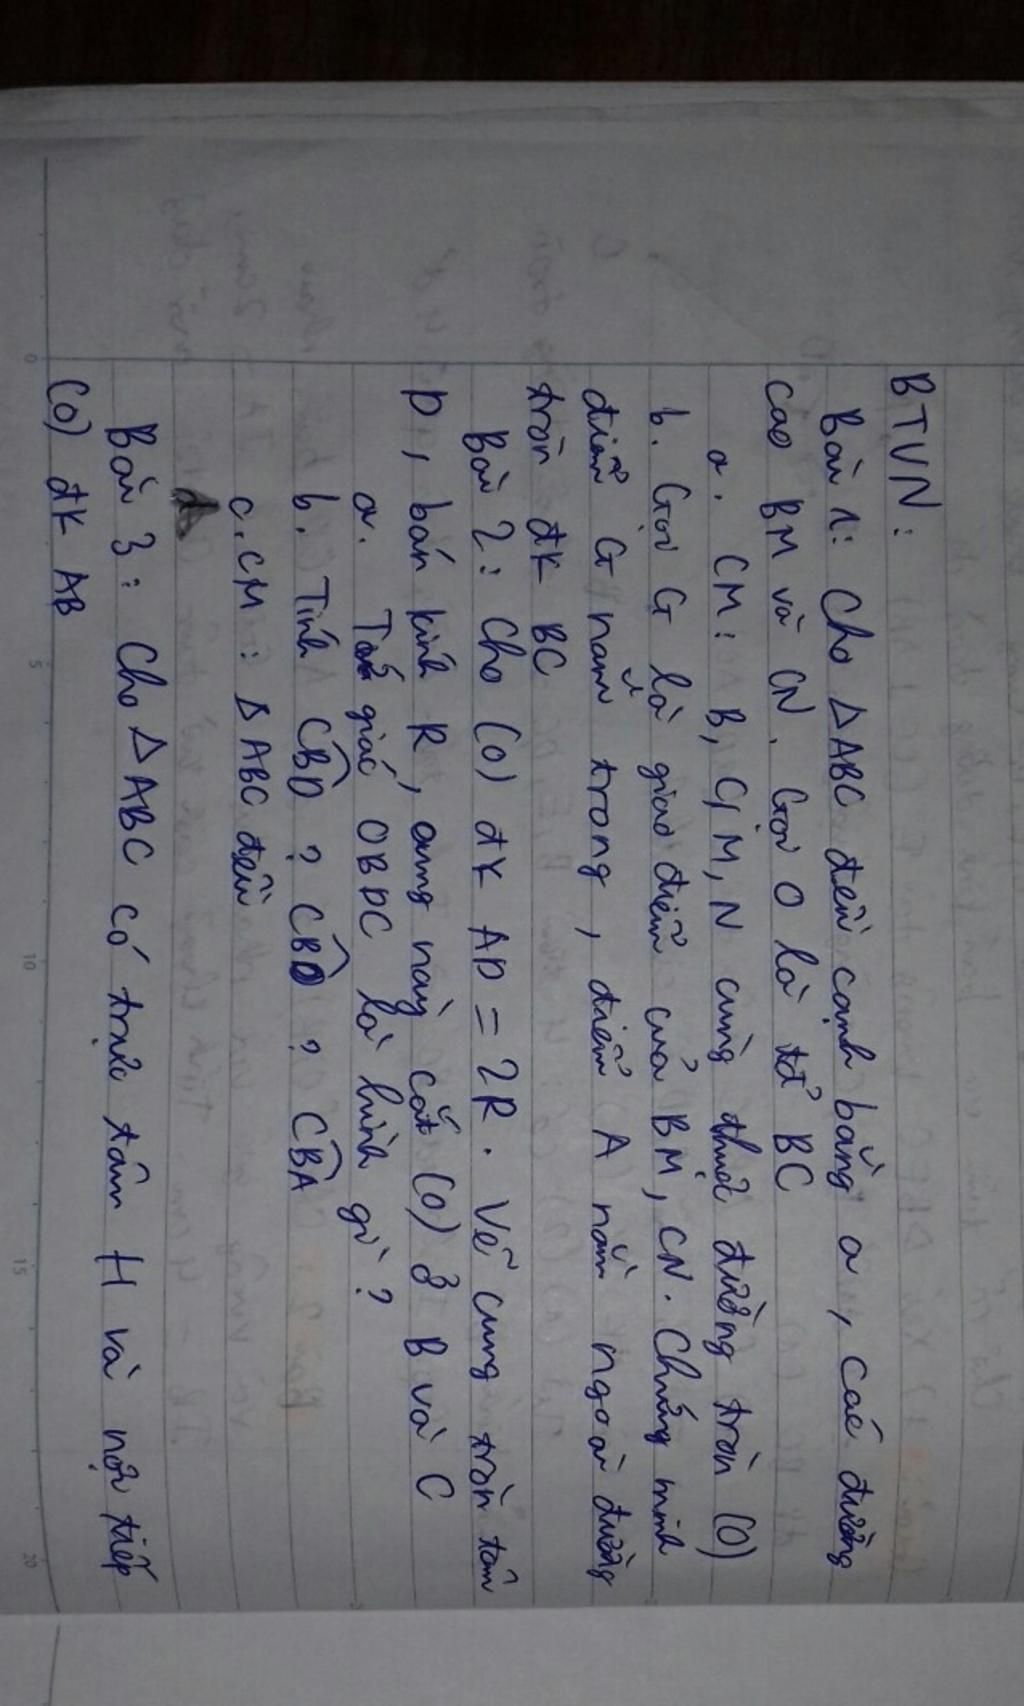 BTVN:
Bài 1: Cho ΔABC đều cạnh bằng a, các đường
cao BM và CN. Gọi O là tđ BC
a. CM: B, C, M, N cùng thuộc đường tròn (O)
b. Gọi G là giao điểm của BM, CN. Chứng minh
điểm G nằm trong, điểm A nằm ngoài đường
tròn đk BC
Bài 2: Cho (O) đk AD = 2R. Vẽ cung tròn tâm
D, bán kính R, cung này cắt (O) ở B và C
a. Tứ giác OBDC là hình gì?
b. Tính CBD? CBO? CBA
c. CM: ΔABC đều
Bài 3: Cho ΔABC có trực tâm H và nội tiếp
(O) đk AB
0
5
10
15
20